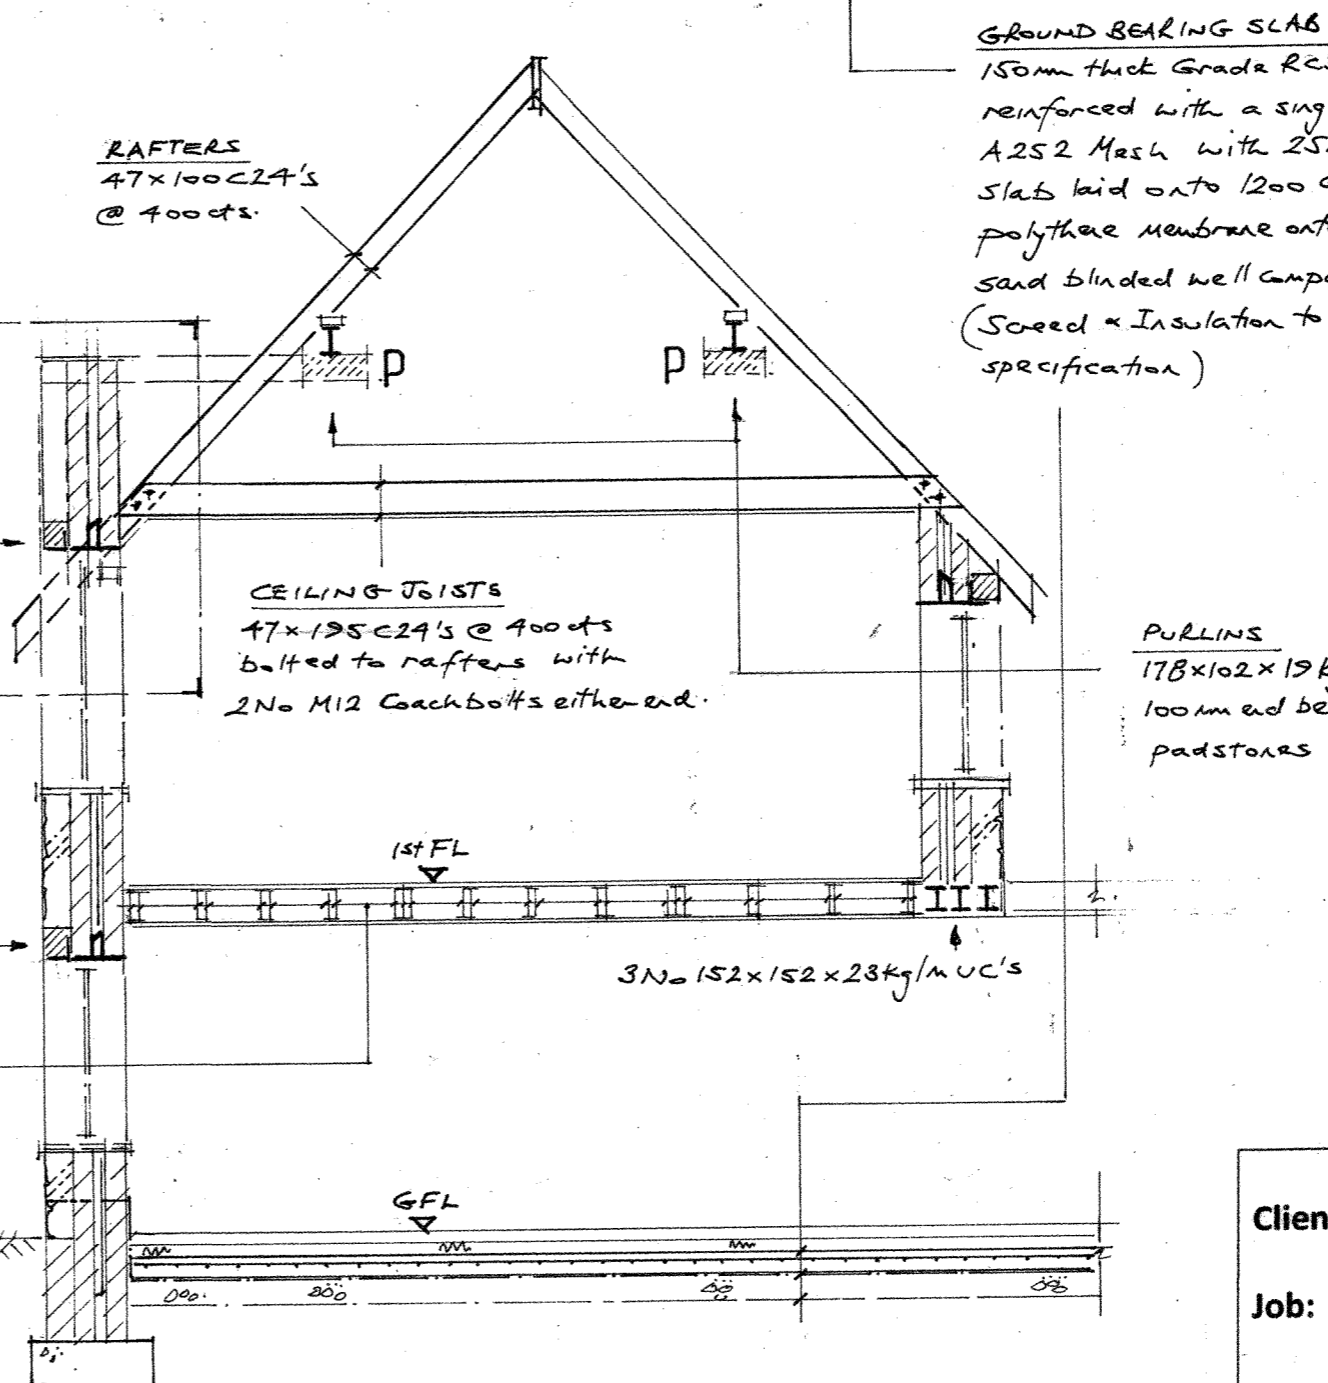 GROUND BEARING SLAB
150mm thick Grade RC
reinforced with a sing
A252 Mesh with 25
slab laid onto 1200
polythene membrane ont
sand blinded well comp
(Screed & Insulation to
specification)
RAFTERS
47x100C24's
@ 400cts.
P
P
CEILING JOISTS
47x195C24's @ 400cts
bolted to rafters with
2No M12 Coachbolts either end.
PURLINS
178x102x19k
100mm end be
padstones
1st FL
3No 152x152x23kg/m UC's
GFL
Clien
Job: